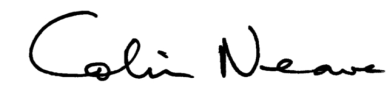 Colin Neave